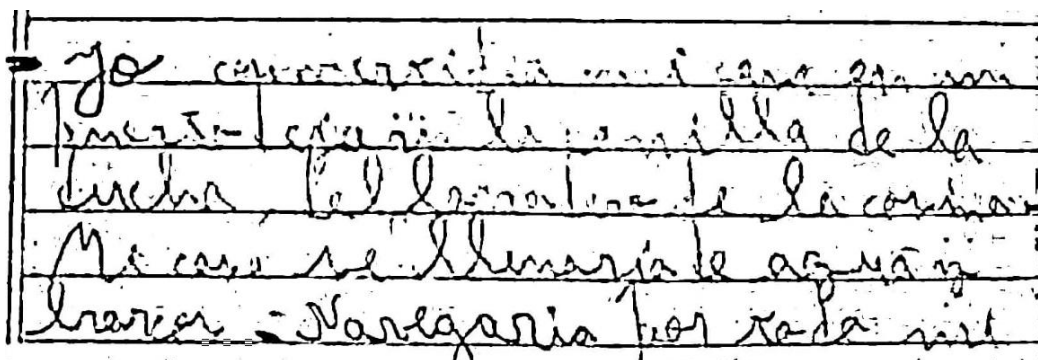 - Yo convertiría mi casa en un
puerto dejaría la canilla de la
ducha, del lavatorio de la cocina
Mi casa se llenaría de agua y
barcos - Navegaría por toda mi